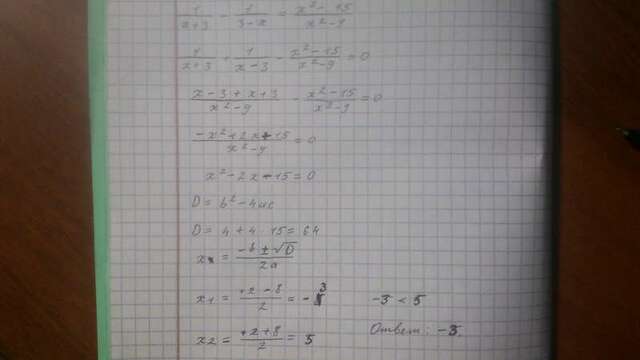 1/(x+3) - 1/(3-x) = (x² - 15)/(x² - 9)
1/(x+3) + 1/(x-3) - (x² - 15)/(x² - 9) = 0
(x - 3 + x + 3)/(x² - 9) - (x² - 15)/(x² - 9) = 0
(-x² + 2x + 15)/(x² - 9) = 0
x² - 2x - 15 = 0
D = b² - 4ac
D = 4 + 4 · 15 = 64
x = (-b ± √D)/2a
x1 = (+2 - 8)/2 = -3
-3 < 5
x2 = (+2 + 8)/2 = 5
Ответ: -3.